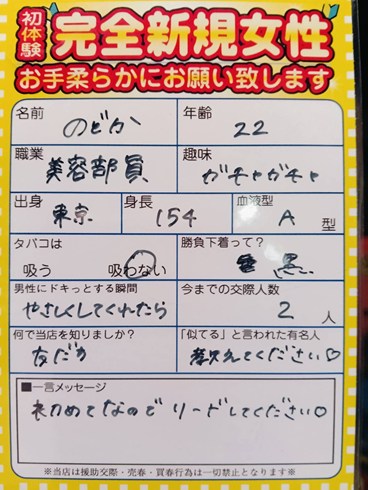 初体験 完全新規女性
お手柔らかにお願い致します
名前 のどか 年齢 22
職業 美容部員 趣味 ガチャガチャ
出身 東京 身長 154 血液型 A 型
タバコは 吸う 吸わない 勝負下着って? 黒
男性にドキっとする瞬間 やさしくしてくれたら 今までの交際人数 2 人
何で当店を知りましたか? 友だち 「似てる」と言われた有名人 教えてください♡
■一言メッセージ
初めてなので リードしてください♡
※当店は援助交際・売春・買春行為は一切禁止となります※